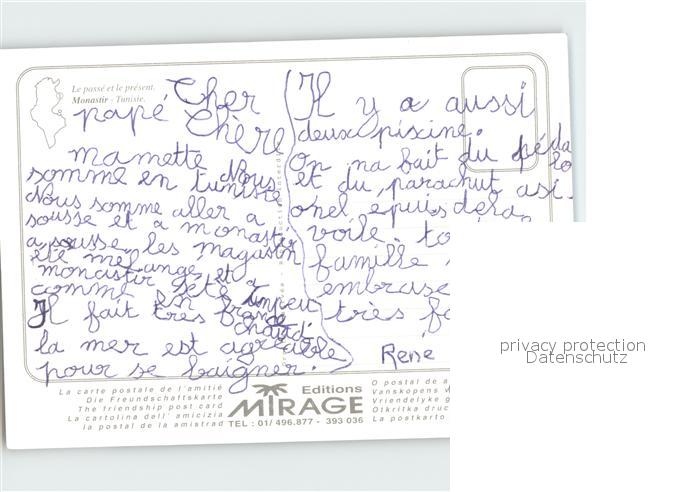 Le passé et le présent.
Monastir : Tunisie.
Cher
papé Chère
mamette Nous
somme en tunisie
Nous somme aller a
sousse et a monaster
a sousse les magasin
été mélange et a
monastir s'été un peu
comme en france
Il fait très chaud
la mer est agréable
pour se baigner.
Il y a aussi
deux pixine.
On na fait du péda
lo
et du parachut asi-
onel epuis
voile. to
famille
embrase
très fo
Rene
La carte postale de l'amitié
Die Freundschaftskarte
The friendship post card
La cartolina dell' amicizia
la postal de la amistrad
Editions
MIRAGE
TEL : 01/ 496.877 - 393 036
O postal de a
Vanskopens v
Vriendelyke g
Otkritka druc
La postkarto
privacy protection
Datenschutz